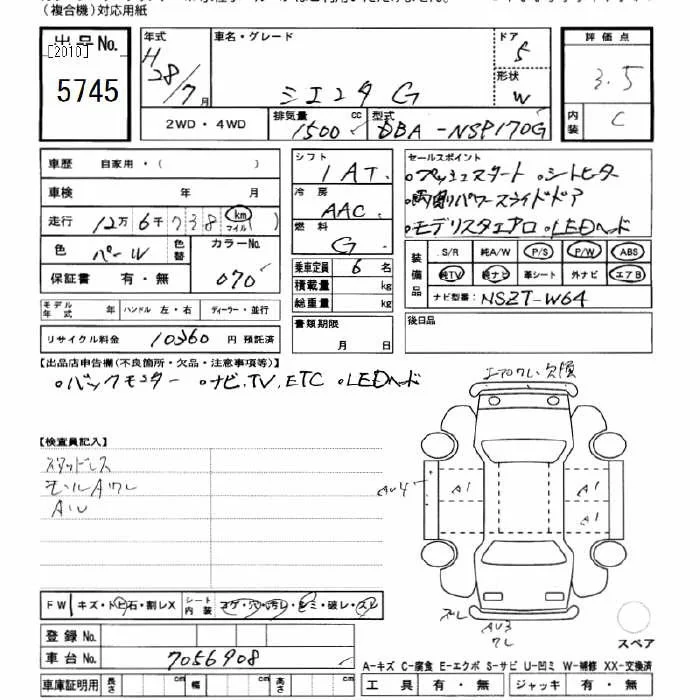 (複合機)対応用紙
出品No.
[2010]
5745
年式 H28/7月
車名・グレード シエンタ G
ドア 5
形状 W
評価点 3.5
内装 C
2WD・4WD
排気量 1500 cc
型式 DBA-NSP170G
車歴 自家用・( )
車検 年 月
走行 12万6千738 (km マイル)
色 パール
色替
カラーNo. 070
保証書 有・無
シフト 1AT
冷房 AAC
燃料 G
乗車定員 6名
積載量 kg
総重量 kg
書類期限 月 日
セールスポイント
・プッシュスタート ・シートヒーター
・両側パワースライドドア
・モデリスタエアロ ・LEDヘッド
装備品
S/R 純A/W P/S P/W ABS
純TV 純ナビ 革シート 外ナビ エアB
ナビ型番: NSZT-W64
モデル年式 年 ハンドル 左・右 ディーラー・並行
リサイクル料金 10360 円 預託済
後日品
【出品店申告欄(不良箇所・欠品・注意事項等)】
・バックモニター ・ナビ,TV,ETC ・LEDヘッド
【検査員記入】
スタッドレス
モールAワレ
エアロワレ 欠損
AU4
A1
A1
A1
AU3
ワレ
スペア
FW キズ・トビ石・割レX
シート内装 コゲ・穴・汚レ・シミ・破レ・スレ
登録No.
車台No. 7056908
車庫証明用 長さ cm 幅 cm 高さ cm
A-キズ C-腐食 E-エクボ S-サビ U-凹ミ W-補修 XX-交換済
工具 有・無 ジャッキ 有・無